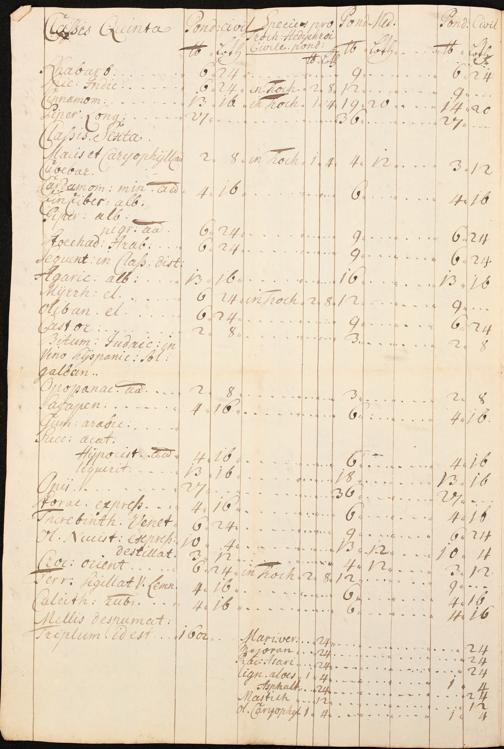 Classis Quinta Pond: civil Species pro Pond. Med. Pond. Civil
Troch. Hedychroi
Civile pond:
℔ Loth ℔ Loth ℔ Loth ℔ Loth
Rhabarb. 6. 24 9. 6. 24
6. 24 in troch 2. 8 12. 9.
Cinamom. 13. 16 in troch 1. 4 19. 20 14. 20
Piper. Long. 27. 36. 27.
Classis Sexta.
Macis et Caryophyll 2. 8 in troch 1. 4 4. 12 3. 12
Cardamom: min. aa 4. 16 6. 4. 16
Zinziber. alb.
Piper: alb.
nigr. aa 6. 24 9. 6. 24
Stoechad. Arab. 6. 24 9. 6. 24
Sequent: in Class. dist:
Agaric. alb: 13. 16 18 13. 16
Myrrh: el. 6. 24 in troch 2. 8 12. 9.
Oliban. el. 6. 24 9. 6. 24
Castor. 2. 8 3. 2. 8
Bitum: Judaic: in
Vino hispanic: sol:
galban..
Opopanac. aa 2. 8 3. 2. 8
Sagapen. 4. 16 6. 4. 16
Gum: arabic.
Succ: acat.
Hypocist. aa 4. 16 6. 4. 16
liquirit. 13. 16 18 13. 16
Opii 27. 36. 27.
Storac. express. 4. 16 6. 4. 16
Therebinth. Venet. 6. 24 9. 6. 24
Ol. Nucist: express. 10. 4 13. 12 10. 4
destillat. 3. 12 4. 12 3. 12
Croc: orient. 6. 24 in troch 2. 8 12. 9.
Terr. sigillat V. Lemn. 4. 16 6. 4. 16
Calcith: rub. 4. 16 6. 4. 16
Mellis despumat:
Triplum. id est 160
Mari ver. 24 24
Majoran. 24 24
Rad: Asari 24 24
lign. aloes 1. 4 1. 4
Asphalt 24 24
Mastich 12 12
ol. Caryophyl 1. 4 4